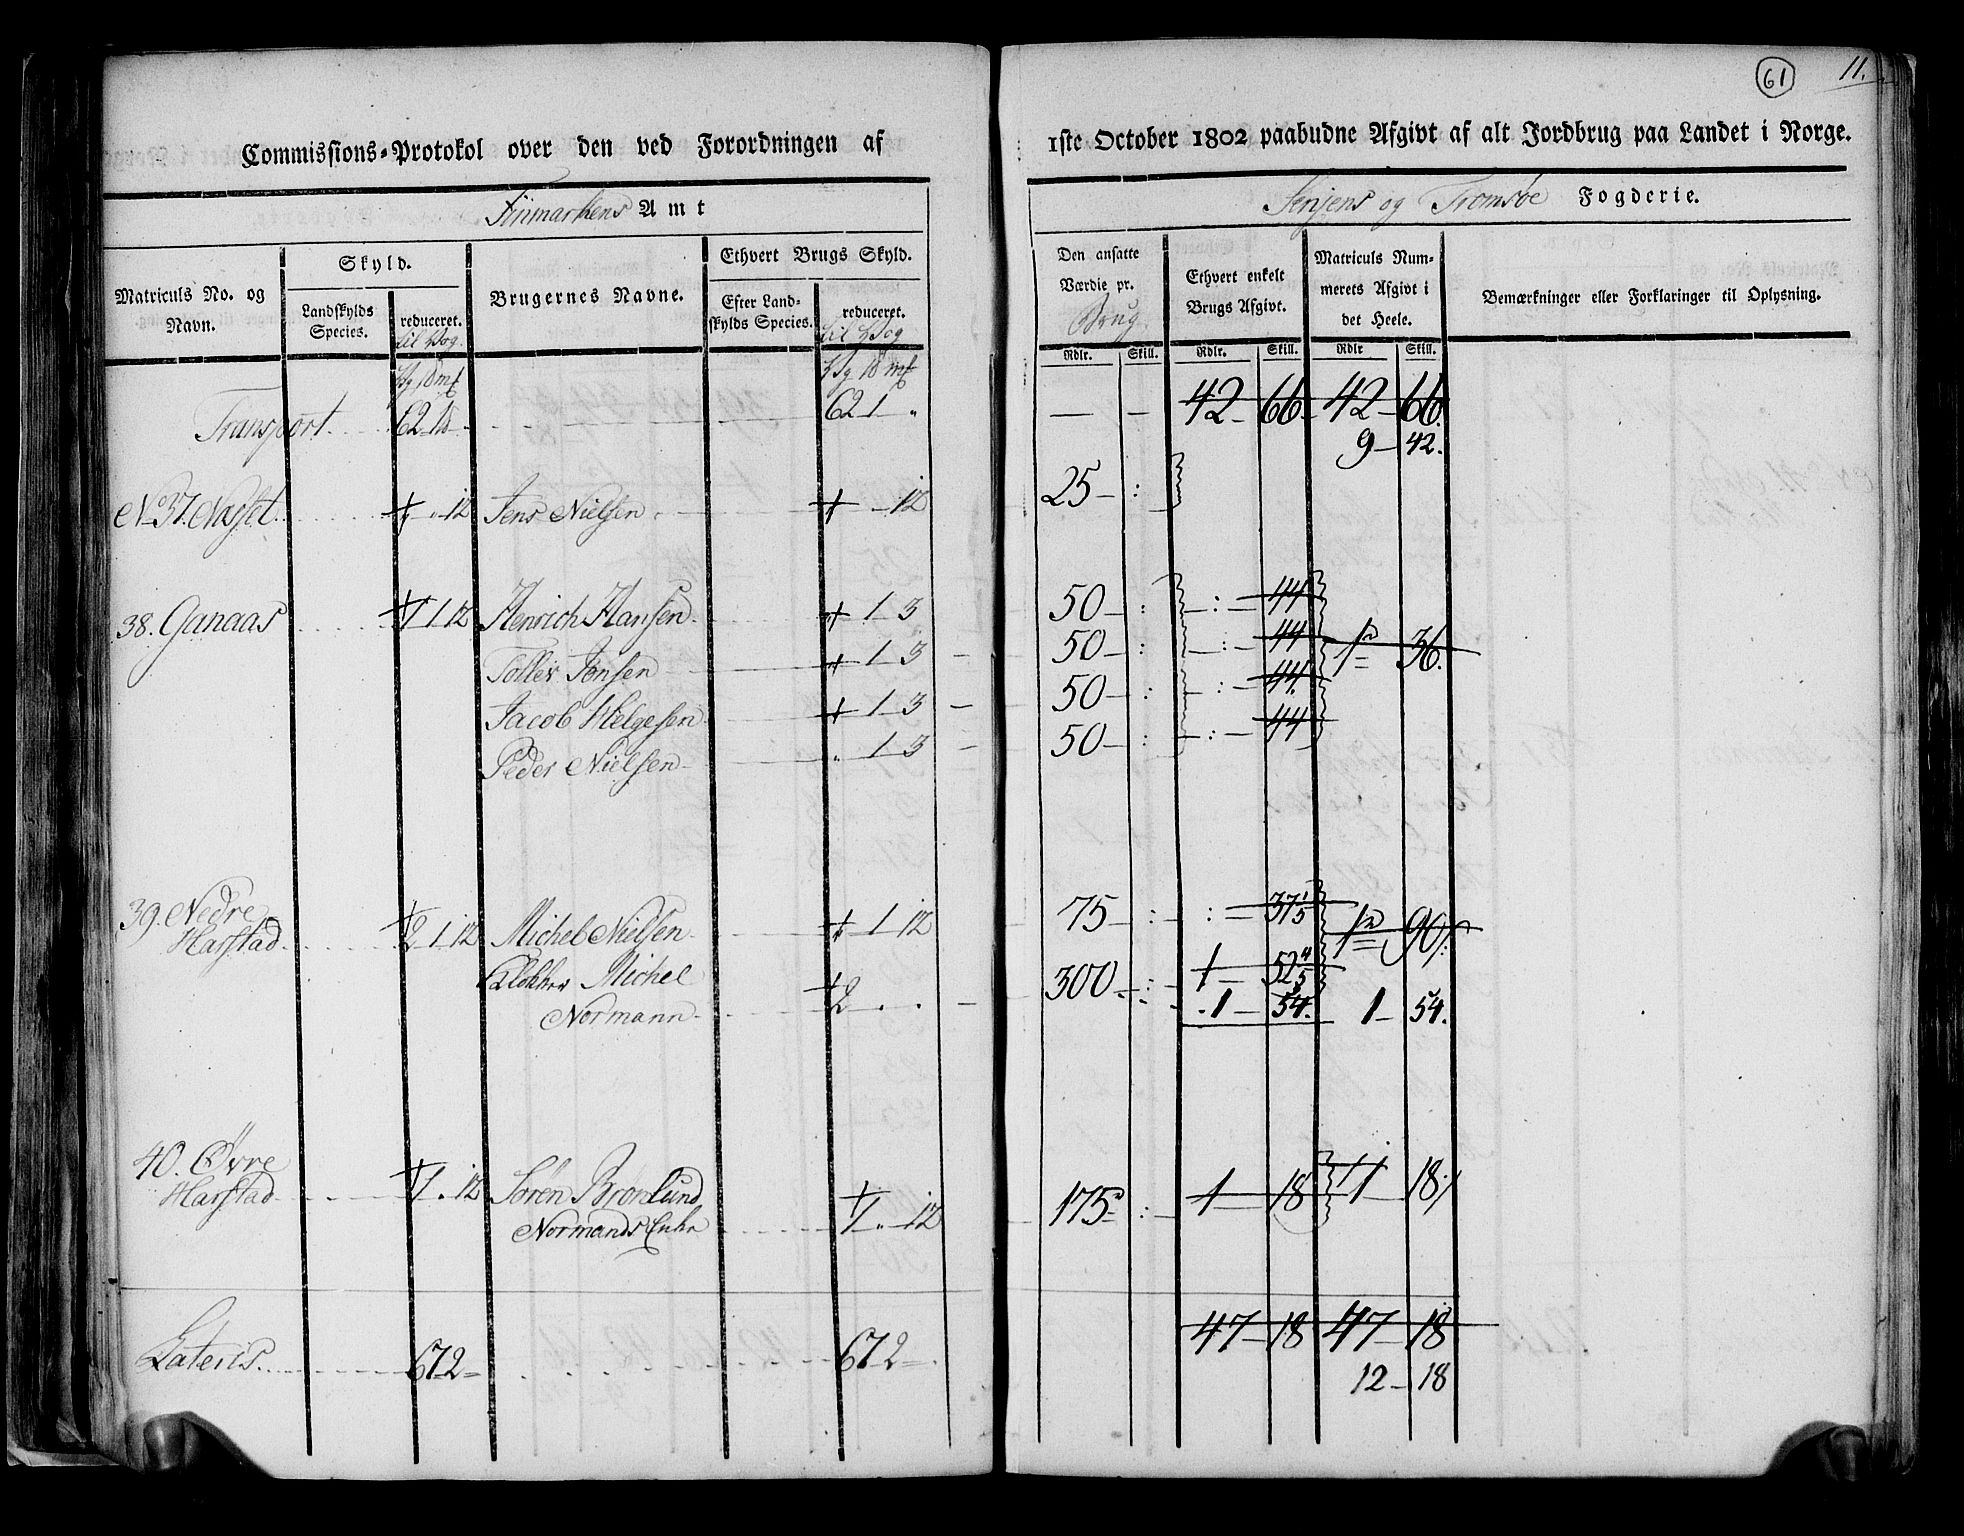 61 11.
Commissions-Protokol over den ved Forordningen af 1ste October 1802 paabudne Afgivt af alt Jordbrug paa Landet i Norge.
Finmarkens Amt
Senjens og Tromsöe Fogderie.
Matriculs No. og Navn.
Skyld.
Landskylds Species.
reduceret.
til Vog
Brugernes Navne.
Ethvert Brugs Skyld.
Efter Landskylds Species.
reduceret.
til Vog
Den ansatte Værdie pr. Brug
Rdlr. Skill.
Ethvert enkelt Brugs Afgivt.
Rdlr. Skill.
Matriculs Nummerets Afgivt i det Heele.
Rdlr Skill.
Bemærkninger eller Forklaringer til Oplysning.
Transport 62 1 62 1 " 42 66 42 66
9 42.
No 37. Næsset 12 Jens Nielsen 12 25 :
38. Ganaas 1 12 Henrich Hansen 1 3 50 : : 44
Toller Jensen 1 3 50 : : 44 1 36.
Jacob Helgesen 1 3 50 : : 44
Peder Nielsen " 1 3 50 : : 44
39. Nedre Harstad 2 1 12 Michel Nielsen 1 12 75 : : 37 1/5 1 90
Klokker Michel Normann 2 . . 300 : 1 52 4/5
1 54. 1 54.
40. Øvre Harstad 1 . 12 Sören Brönlund
Normands Enke 1 " 12 175 : 1 18 1 18
Lateris 67 2 = 67 2 = 47 18 47 18
12 18